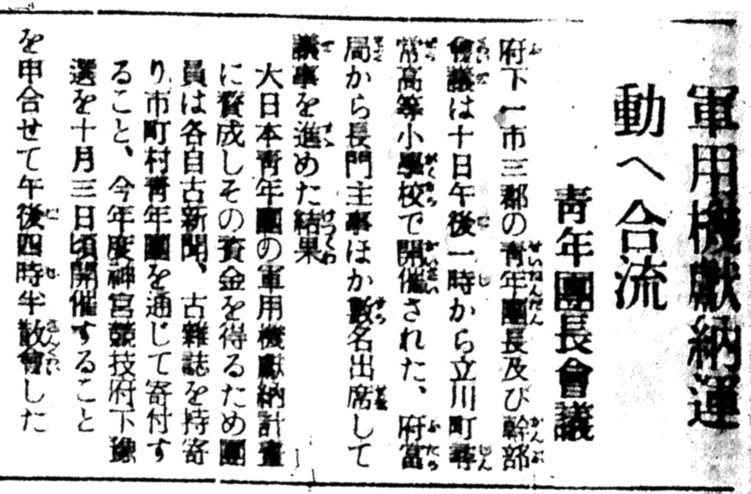 軍用機獻納運
動へ合流
靑年團長會議
府下一市三郡の靑年團長及び幹部
會議は十日午後一時から立川町尋
常高等小學校で開催された、府當
局から長門主事ほか數名出席して
議事を進めた結果
大日本靑年團の軍用機獻納計畫
に賛成しその資金を得るため團
員は各自古新聞、古雜誌を持寄
り市町村靑年團を通じて寄付す
ること、今年度神宮競技府下豫
選を十月三日頃開催すること
を申合せて午後四時半散會した